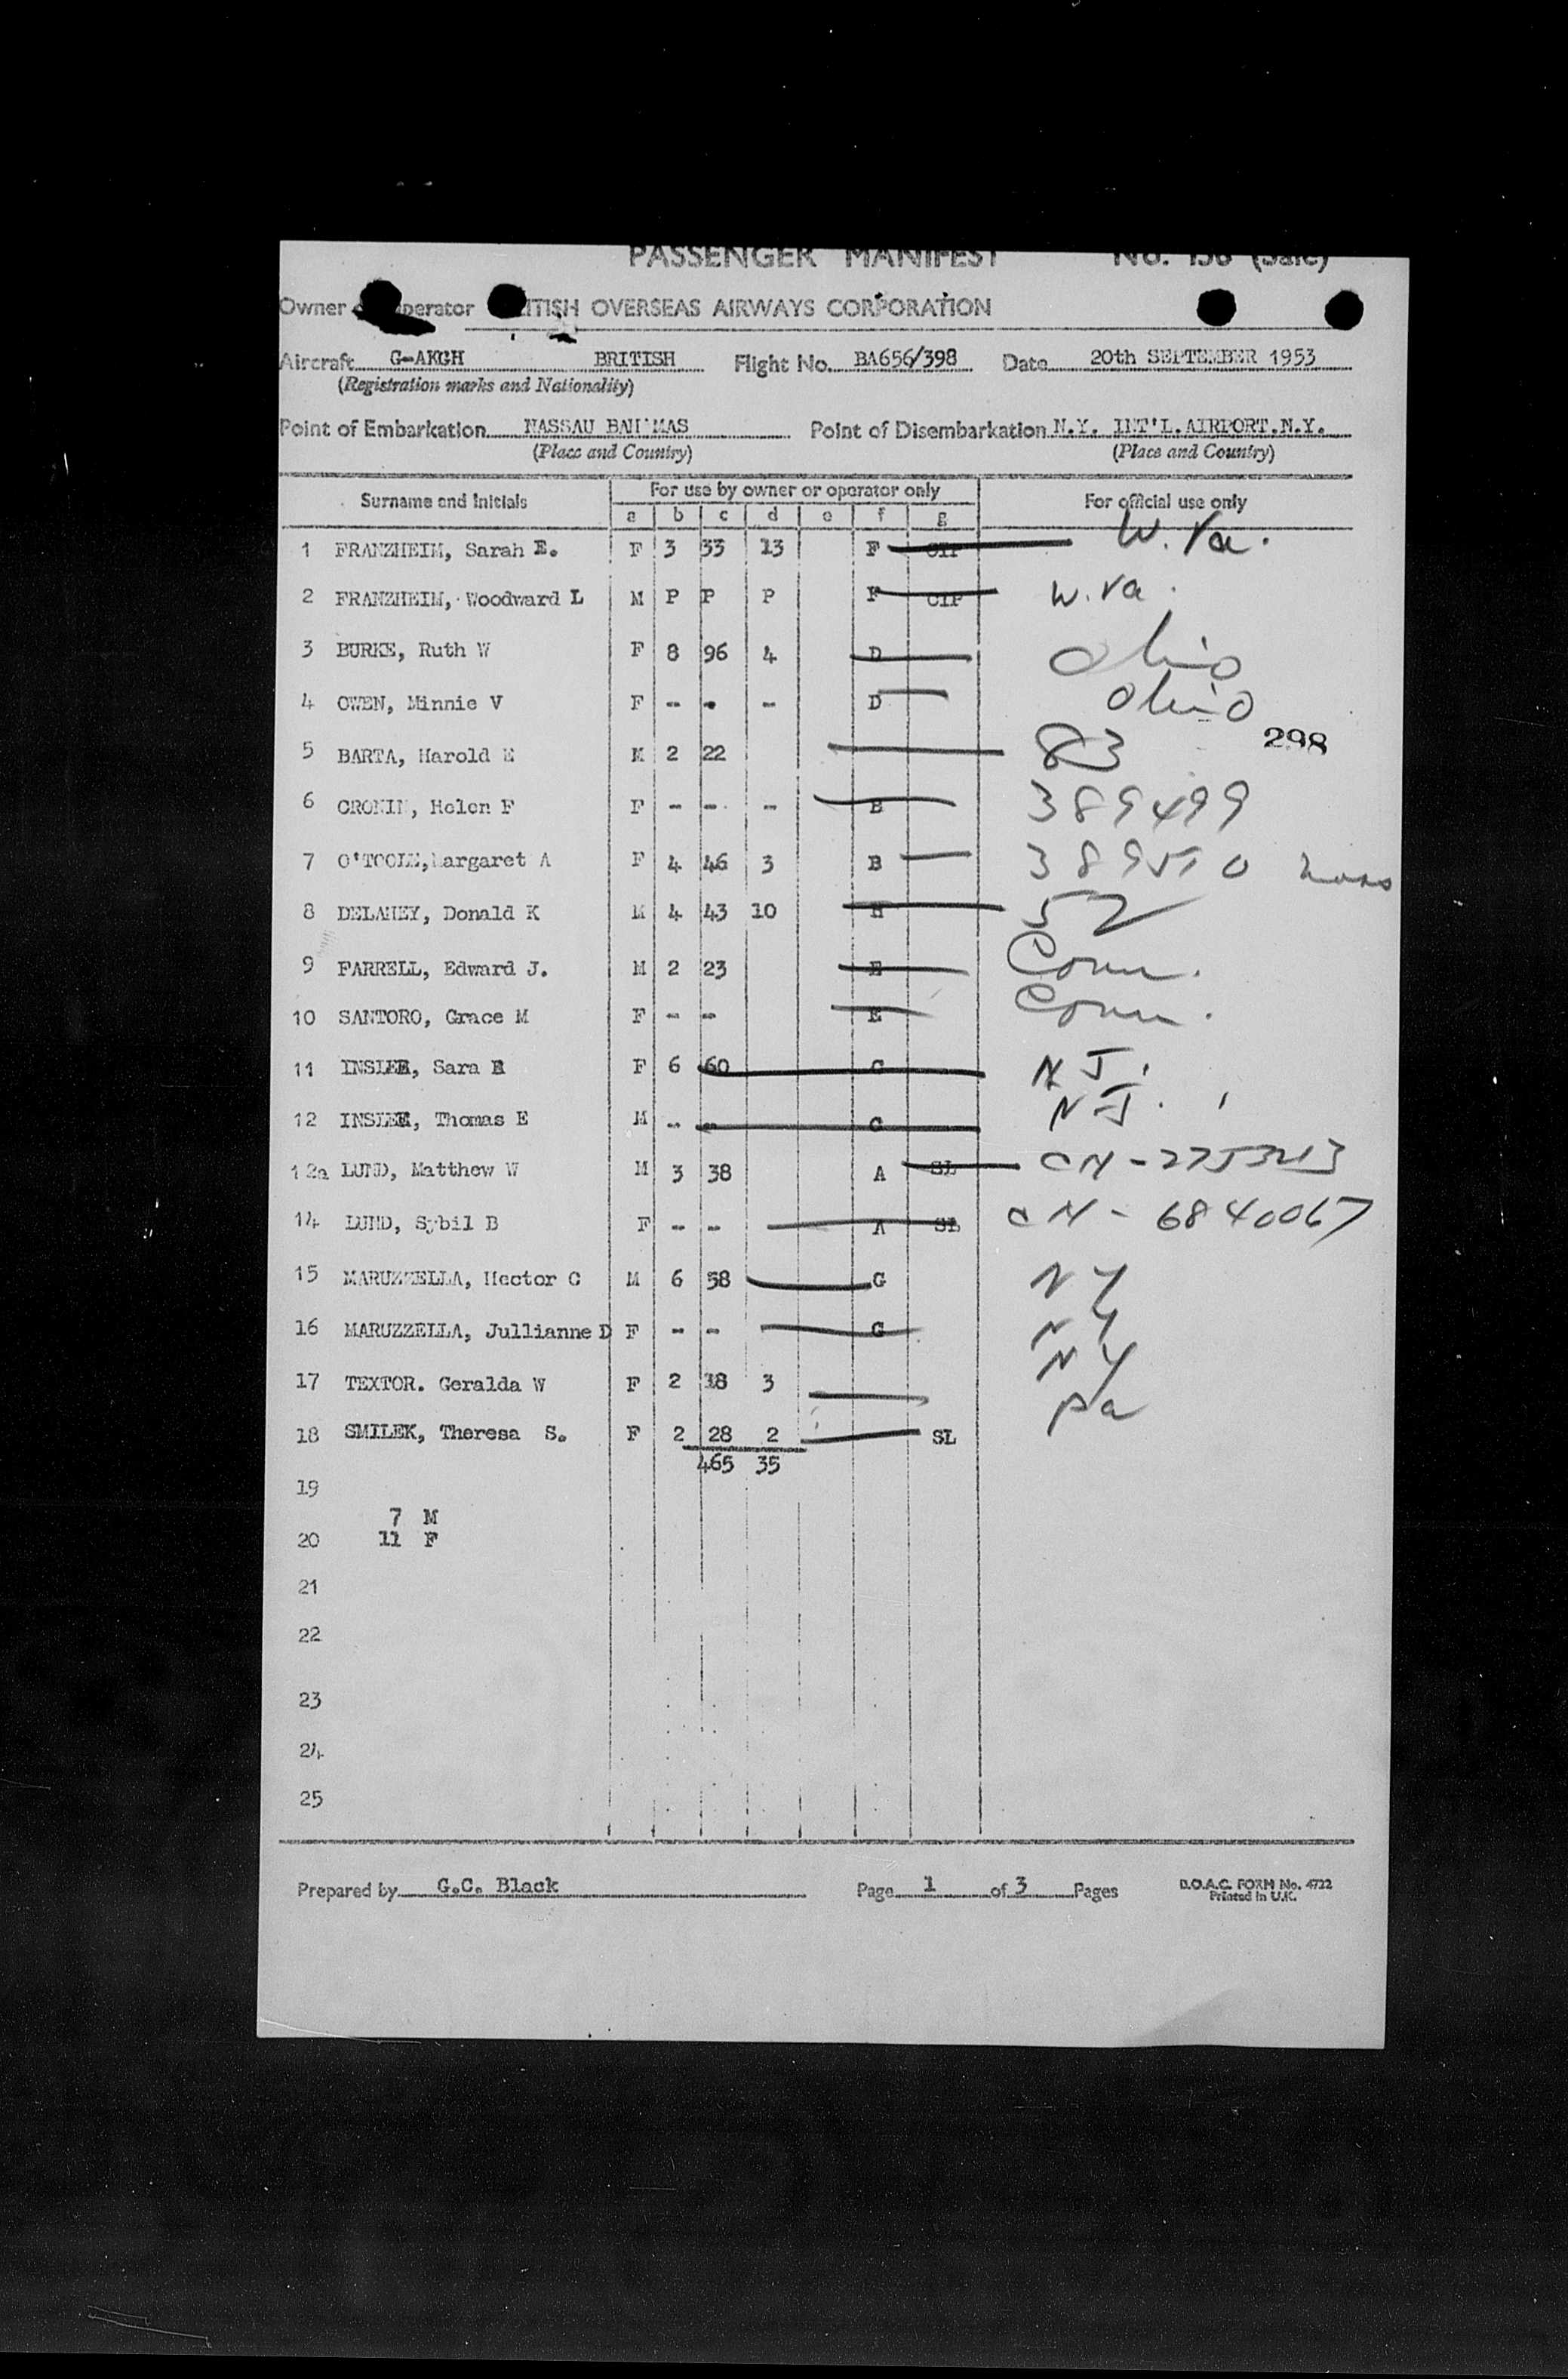 PASSENGER MANIFEST No.
Owner BRITISH OVERSEAS AIRWAYS CORPORATION
Aircraft G-AKGH BRITISH Flight No. BA656/398 Date 20th SEPTEMBER 1953
(Registration marks and Nationality)
Point of Embarkation NASSAU BAH'MAS Point of Disembarkation N.Y. INT'L.AIRPORT.N.Y.
(Place and Country) (Place and Country)
Surname and Initials For use by owner or operator only For official use only
a b c d e f g
1 FRANZHEIM, Sarah E. F 3 33 13 F CIP W. Va.
2 FRANZHEIM, Woodward L M P P P F CIP W. Va.
3 BURKE, Ruth W F 8 96 4 D Ohio
4 OWEN, Minnie V F - - - D Ohio
298
5 BARTA, Harold E M 2 22 83
6 CRONIN, Helen F F - - - B 389499
7 O'TOOLE, Margaret A F 4 46 3 B 389510 Mass
8 DELAHEY, Donald K M 4 43 10 H 52
9 FARRELL, Edward J. M 2 23 E Conn.
10 SANTORO, Grace M F - - E Conn.
11 INSLEE, Sara E F 6 60 C N J.
12 INSLEE, Thomas E M - - C N J.
12a LUND, Matthew W M 3 38 A SL CN-
14 LUND, Sybil B F - - A SL CN - 6840067
15 MARUZZELLA, Hector C M 6 58 G N Y
16 MARUZZELLA, Jullianne D F - - G N Y
17 TEXTOR. Geralda W F 2 18 3 N Y
18 SMILEK, Theresa S. F 2 28 2 SL Pa
465 35
19
7 M
20 11 F
21
22
23
24
25
Prepared by G.C. Black Page 1 of 3 Pages B.O.A.C. FORM No. 4722
Printed in U.K.